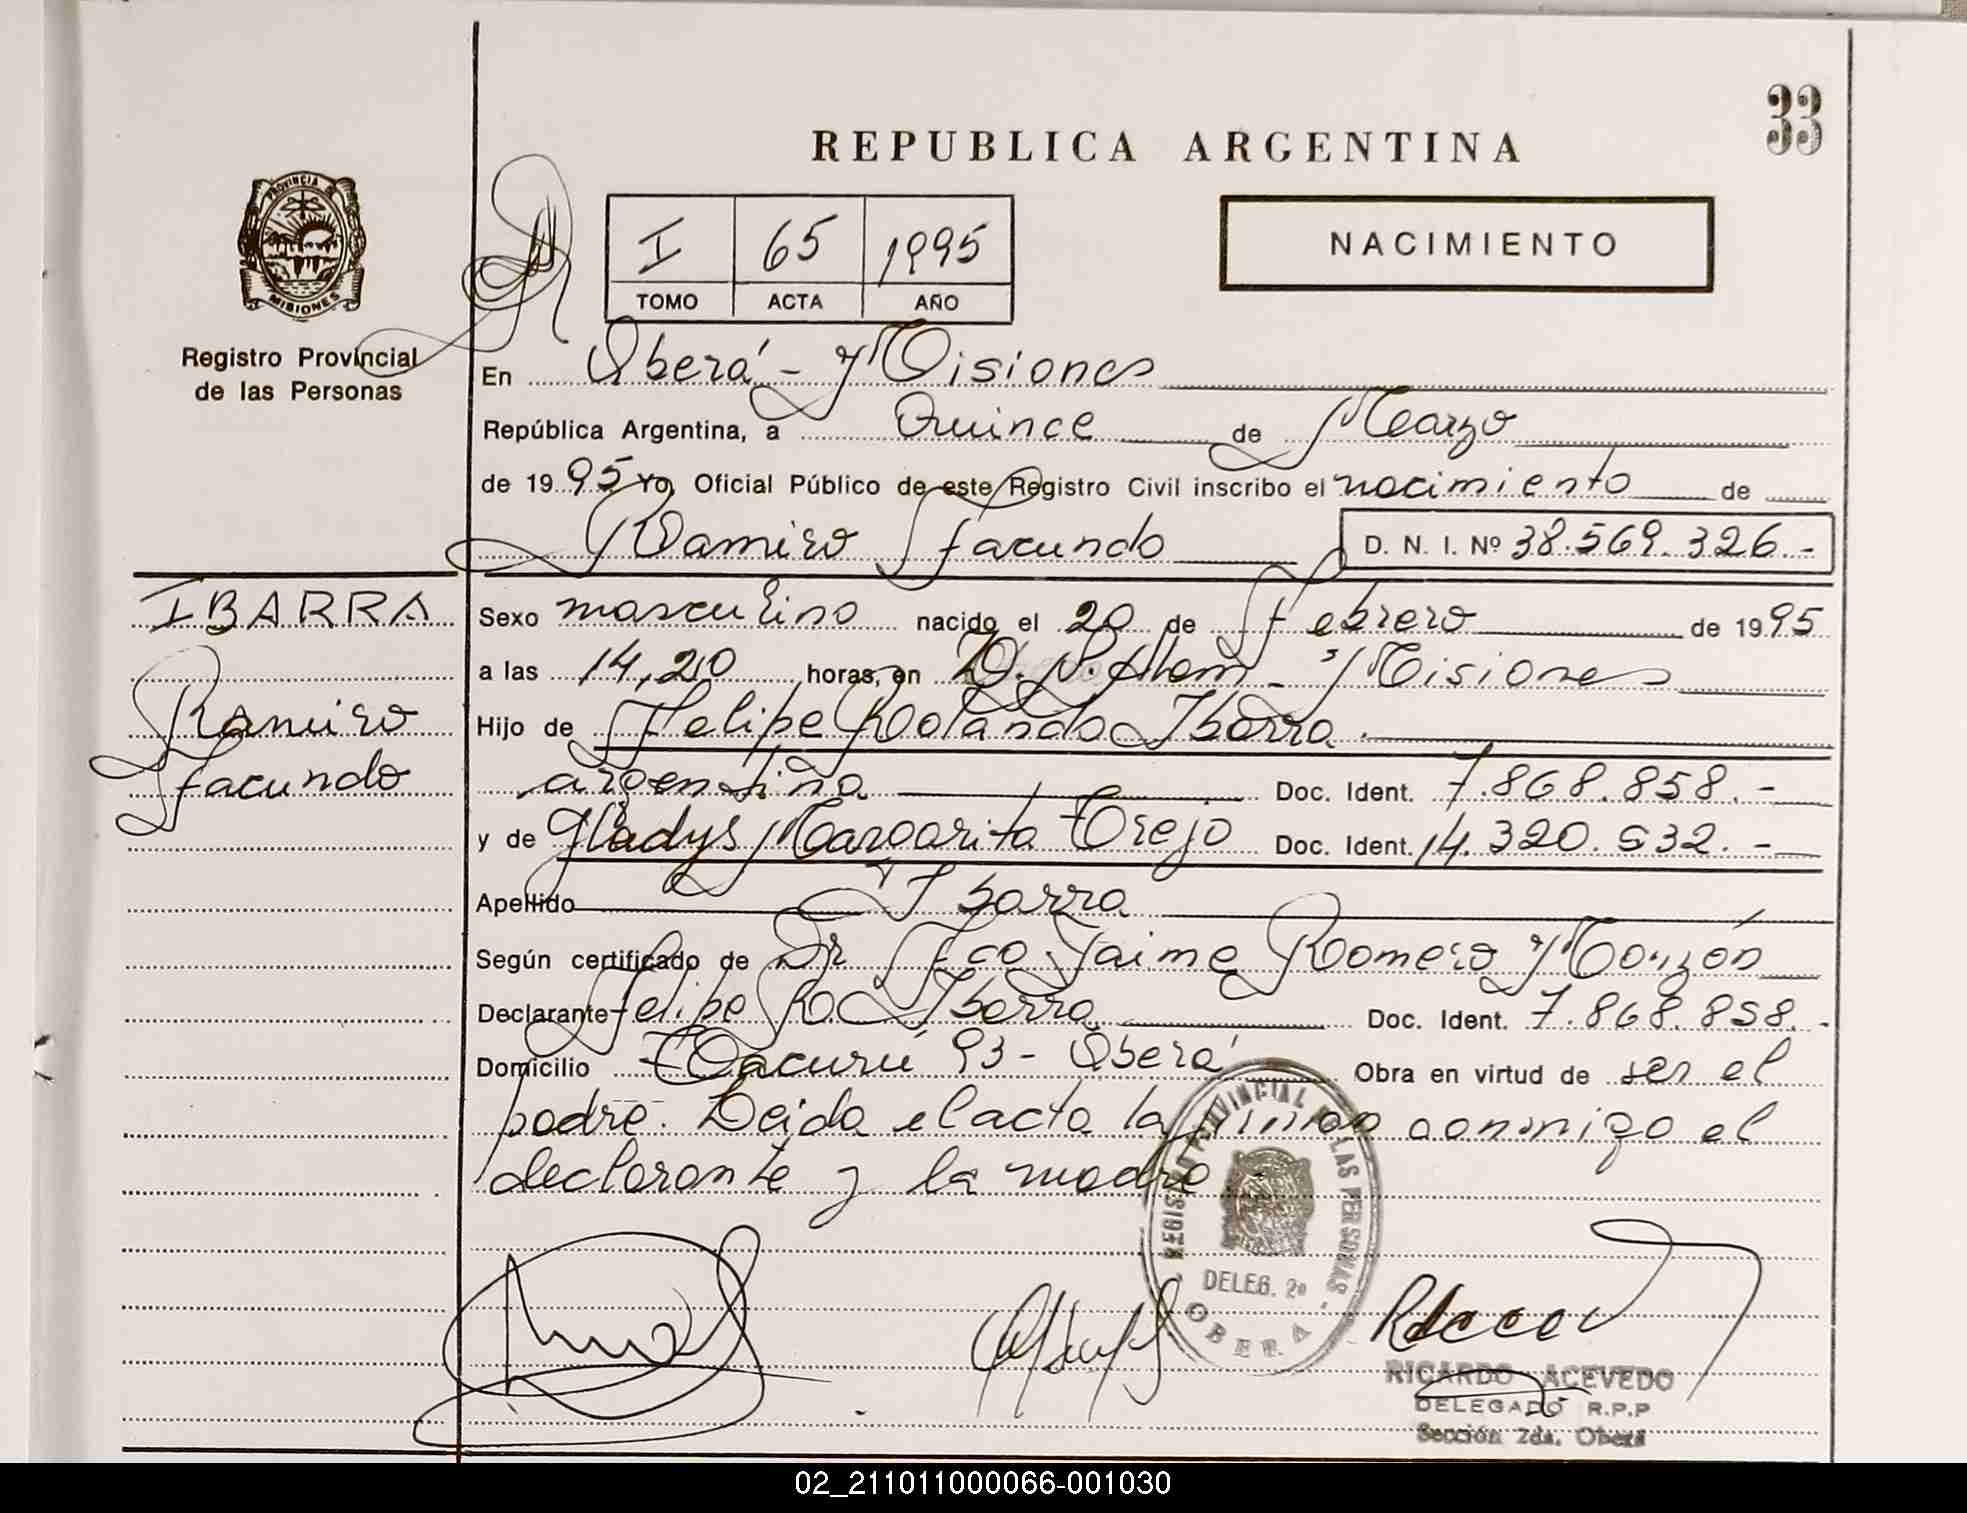 33
REPUBLICA ARGENTINA
PROVINCIA DE
MISIONES
Registro Provincial
de las Personas
I 65 1995
TOMO ACTA AÑO
NACIMIENTO
En Oberá - Misiones
República Argentina, a Quince de Marzo
de 1995 Yo, Oficial Público de este Registro Civil inscribo el nacimiento de
Ramiro Facundo D. N. I. Nº 38.569.326.-
IBARRA
Ramiro
Facundo
Sexo masculino nacido el 20 de Febrero de 1995
a las 14,20 horas, en L. N. Alem - Misiones
Hijo de Felipe Rolando Ibarra.
argentina Doc. Ident. 7.868.858.-
y de Gladys Margarita Trejo Doc. Ident. 14.320.532.-
Apellido Ibarra
Según certificado de Dr Fco Jaime Romero Monzón
Declarante Felipe R. Ibarra Doc. Ident. 7.868.858.-
Domicilio Tacurú 93 - Oberá Obra en virtud de ser el
padre. Leida el acta la firman conmigo el
declarante y la madre.
REGISTRO PROVINCIAL DE LAS PERSONAS
DELEG. 2ª
OBERA
RICARDO ACEVEDO
DELEGADO R.P.P
Sección 2da. Oberá
02_211011000066-001030